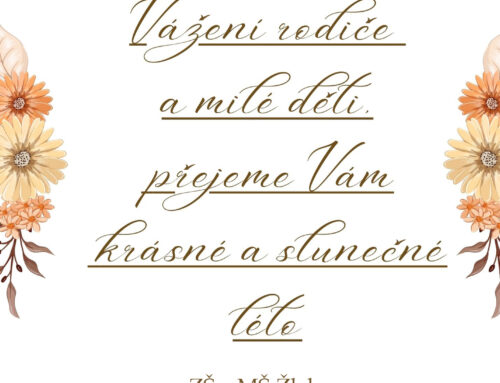 Vážení rodiče
a milé děti,
přejeme Vám
krásné a slunečné
léto